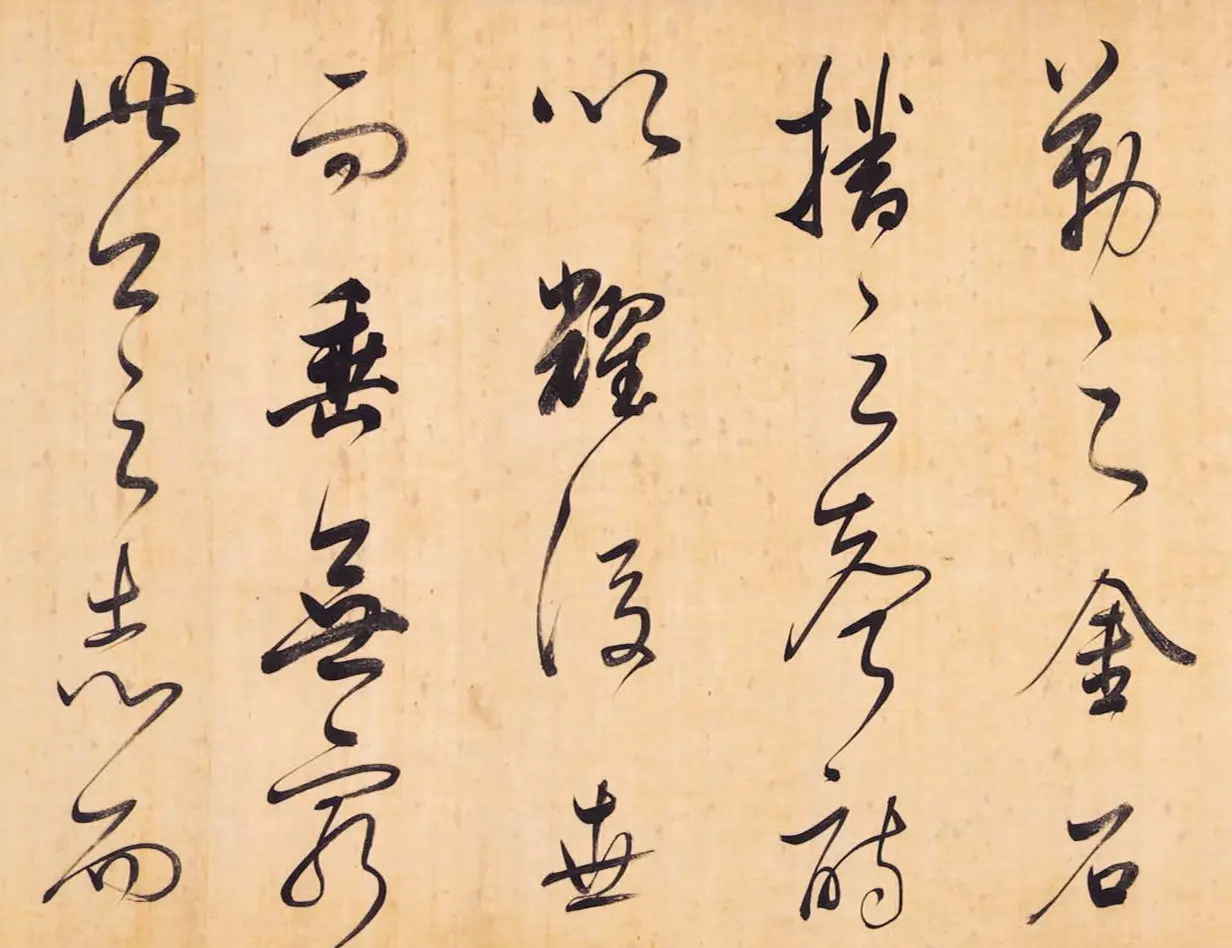 勒之金石
播之聲詩
以耀後世
而垂無窮
此公之志而